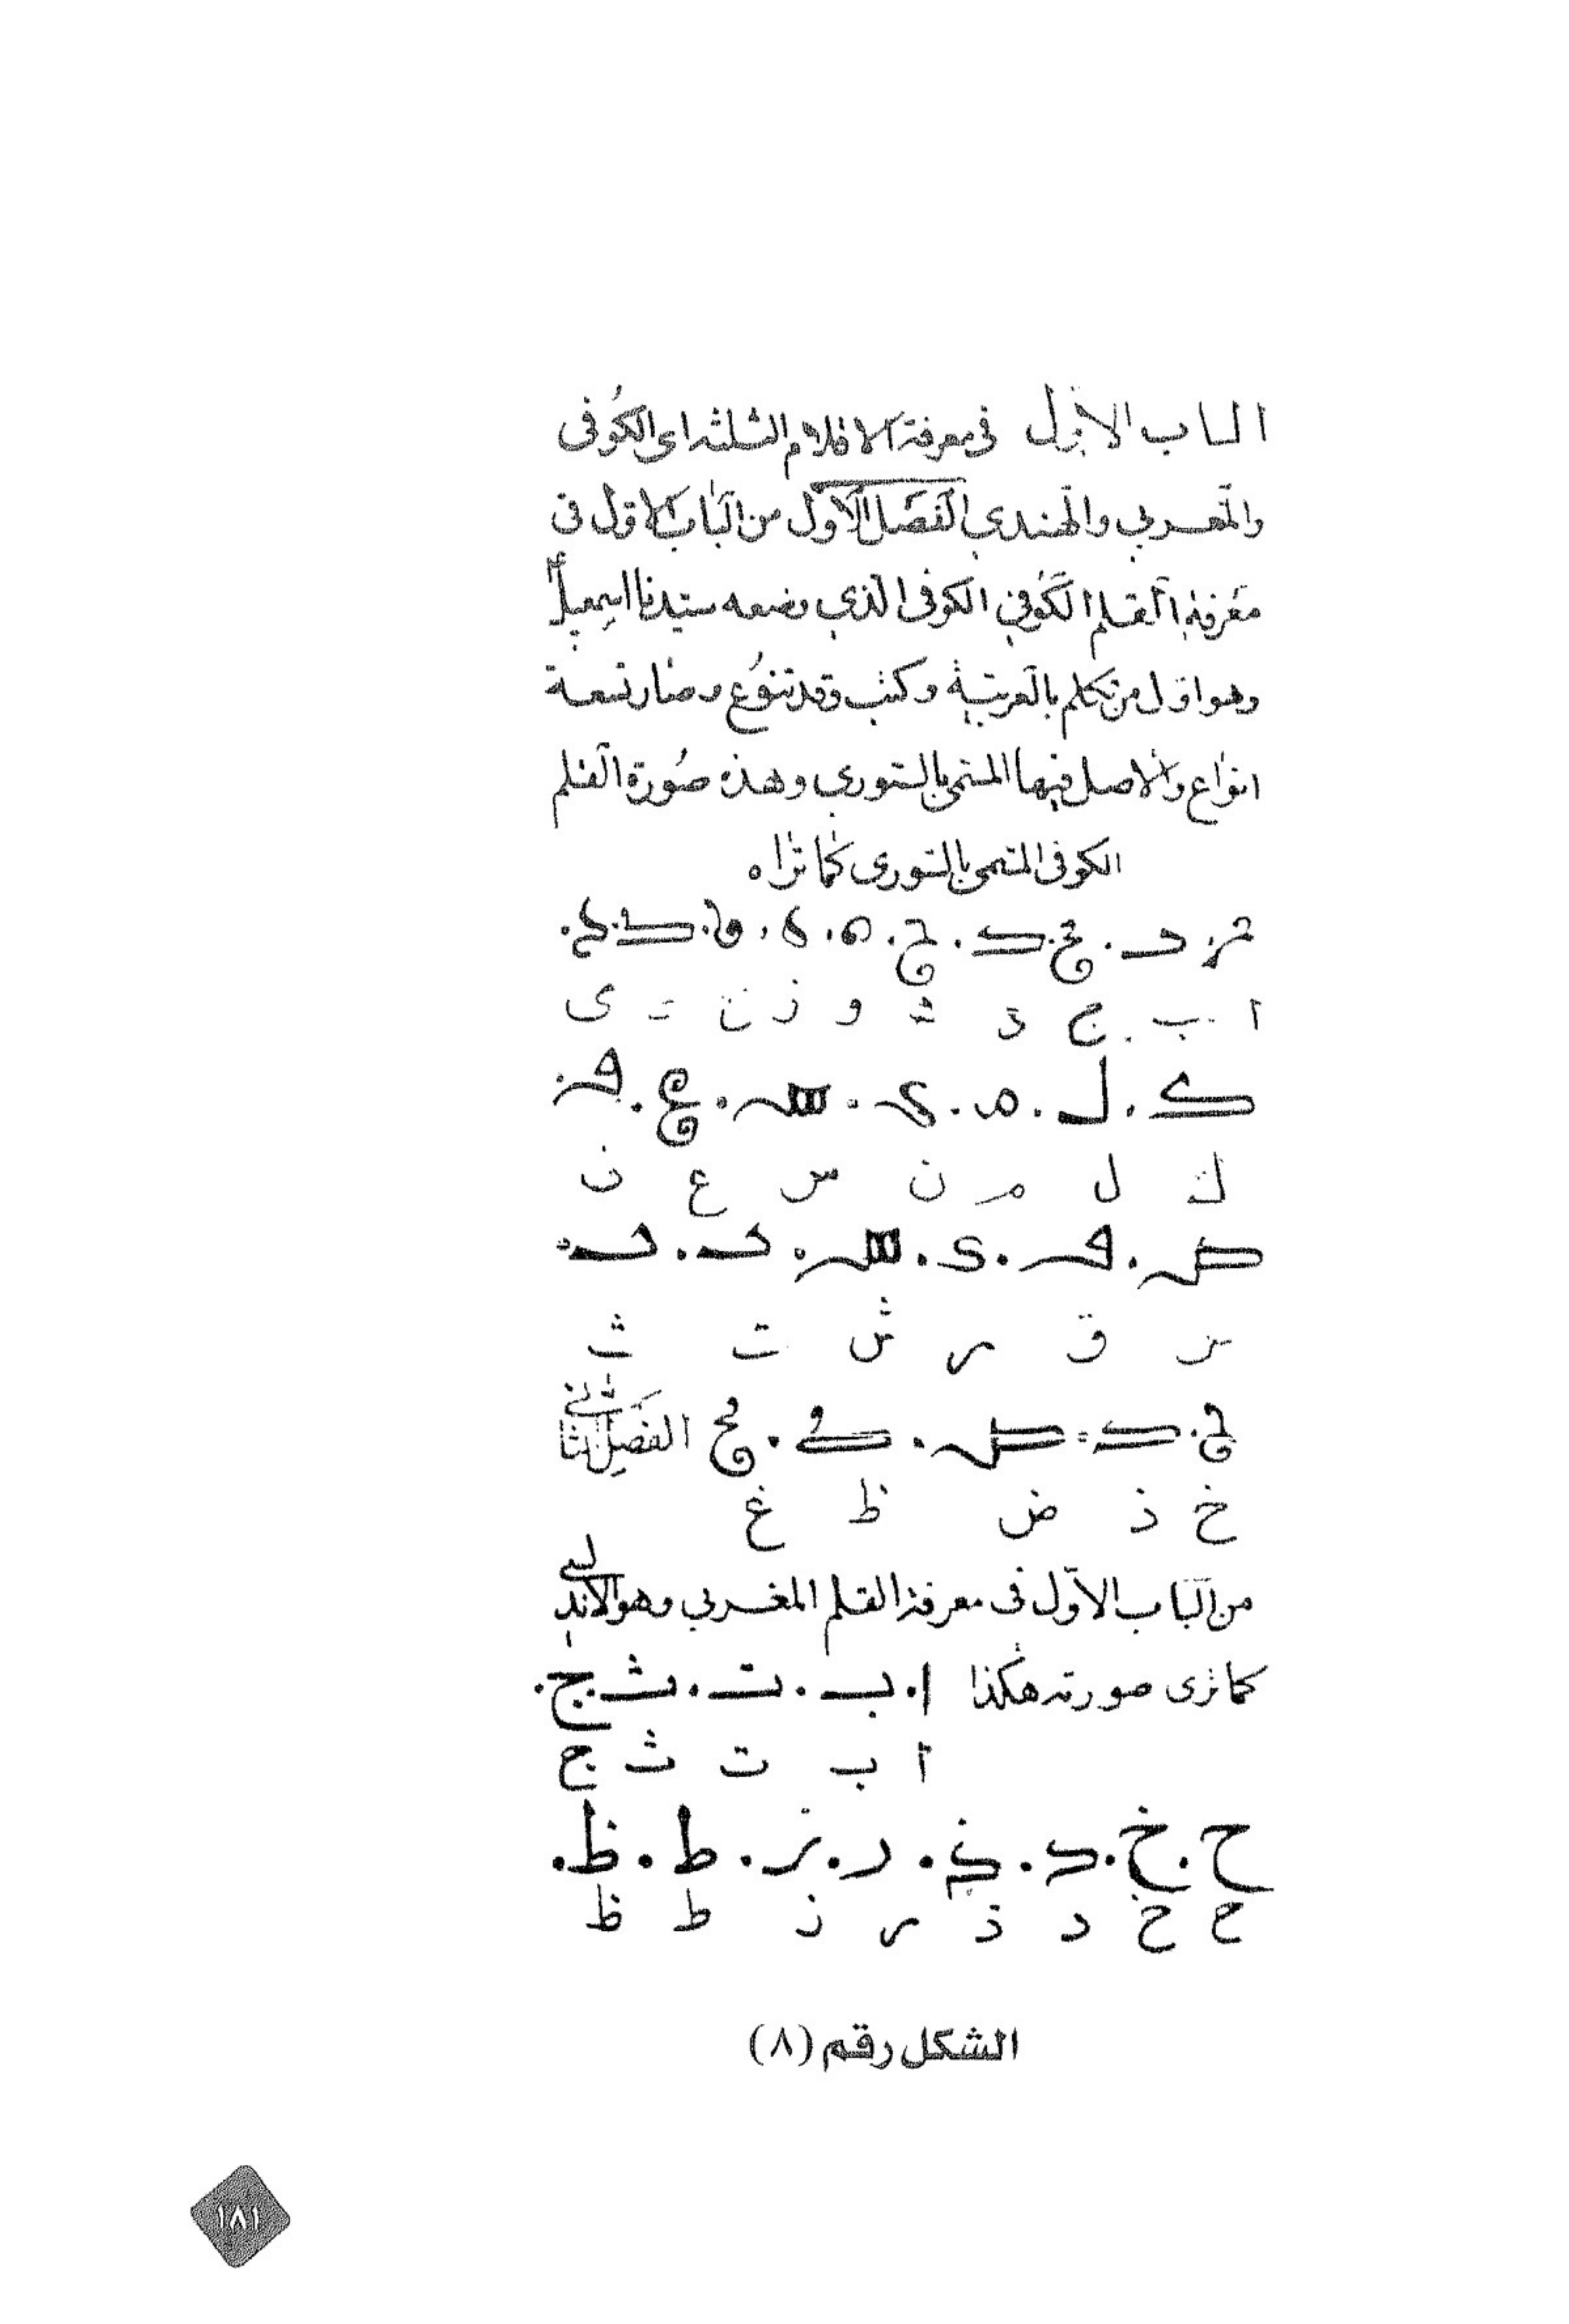 الباب الاول في معرفة الاقلام الثلثه اى الكُوفى
والمغربي والهندي الفصل الاول من الباب الاول فى
معرفة القلم الكوفي الكوفى الذي وضعه سيدنا اسمعيل
وهو اول من تكلم بالعربية وكتب وقد تنوع وصار تسعة
انواع والاصل فيها المسمى بالسوري وهذه صورة القلم
الكوفى المسمى بالسورى كما تراه
ا ب ج د ه و ز ح ى
ك ل م ن س ع ف
ك ل م ن س ع ف
ص ق ر ش ت ث
ص ق ر ش ت ث
الفصل الثاني
خ ذ ض ظ غ
من الباب الاول فى معرفة القلم المغربي وهو الاندلسي
كما ترى صورته هكذا ا. ب. ت. ث. ج.
ا ب ت ث ج
ح. خ. د. ذ. ر. ز. ط. ظ.
ح خ د ذ ر ز ط ظ
الشكل رقم (٨)
١٨١